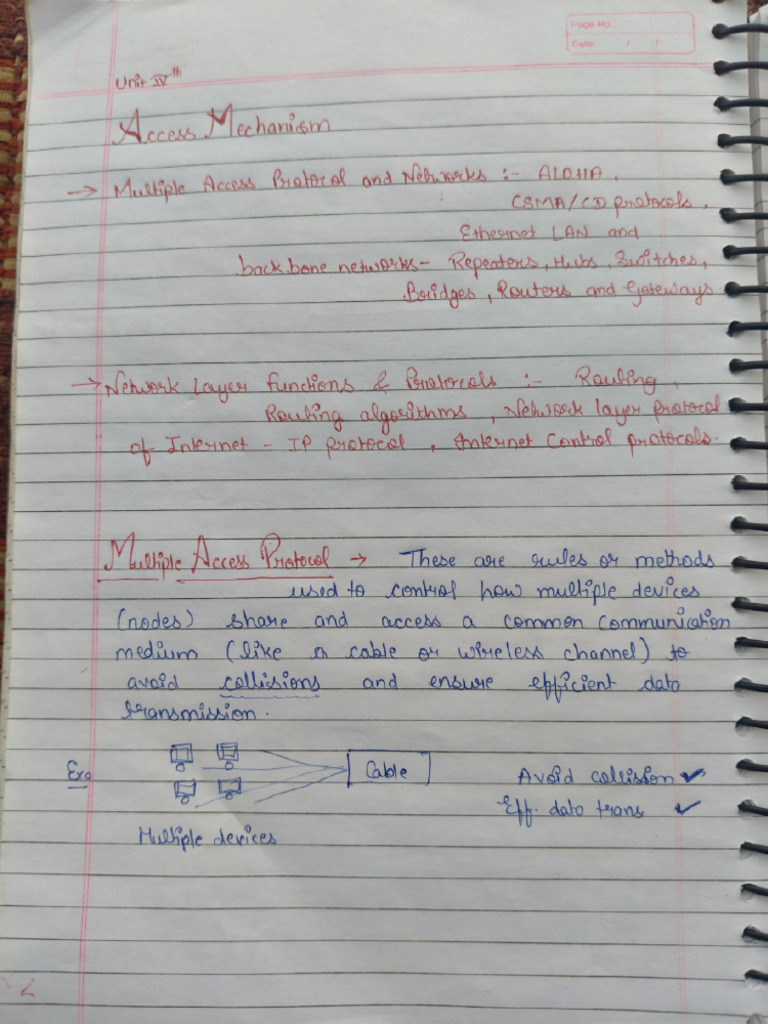 Page No.:
Date: / /
Unit IVth
Access Mechanism
→ Multiple Access Protocol and Networks :- ALOHA,
CSMA/CD protocols,
Ethernet LAN and
backbone networks - Repeaters, Hubs, Switches,
Bridges, Routers and Gateways
→ Network Layer functions & Protocols :- Routing,
Routing algorithms, Network layer protocol
of Internet - IP protocol, Internet Control protocols.
Multiple Access Protocol → These are rules or methods
used to control how multiple devices
(nodes) share and access a common communication
medium (like a cable or wireless channel) to
avoid collisions and ensure efficient data
transmission.
Exo
Cable
Avoid collision ✓
Eff. data trans ✓
Multiple devices